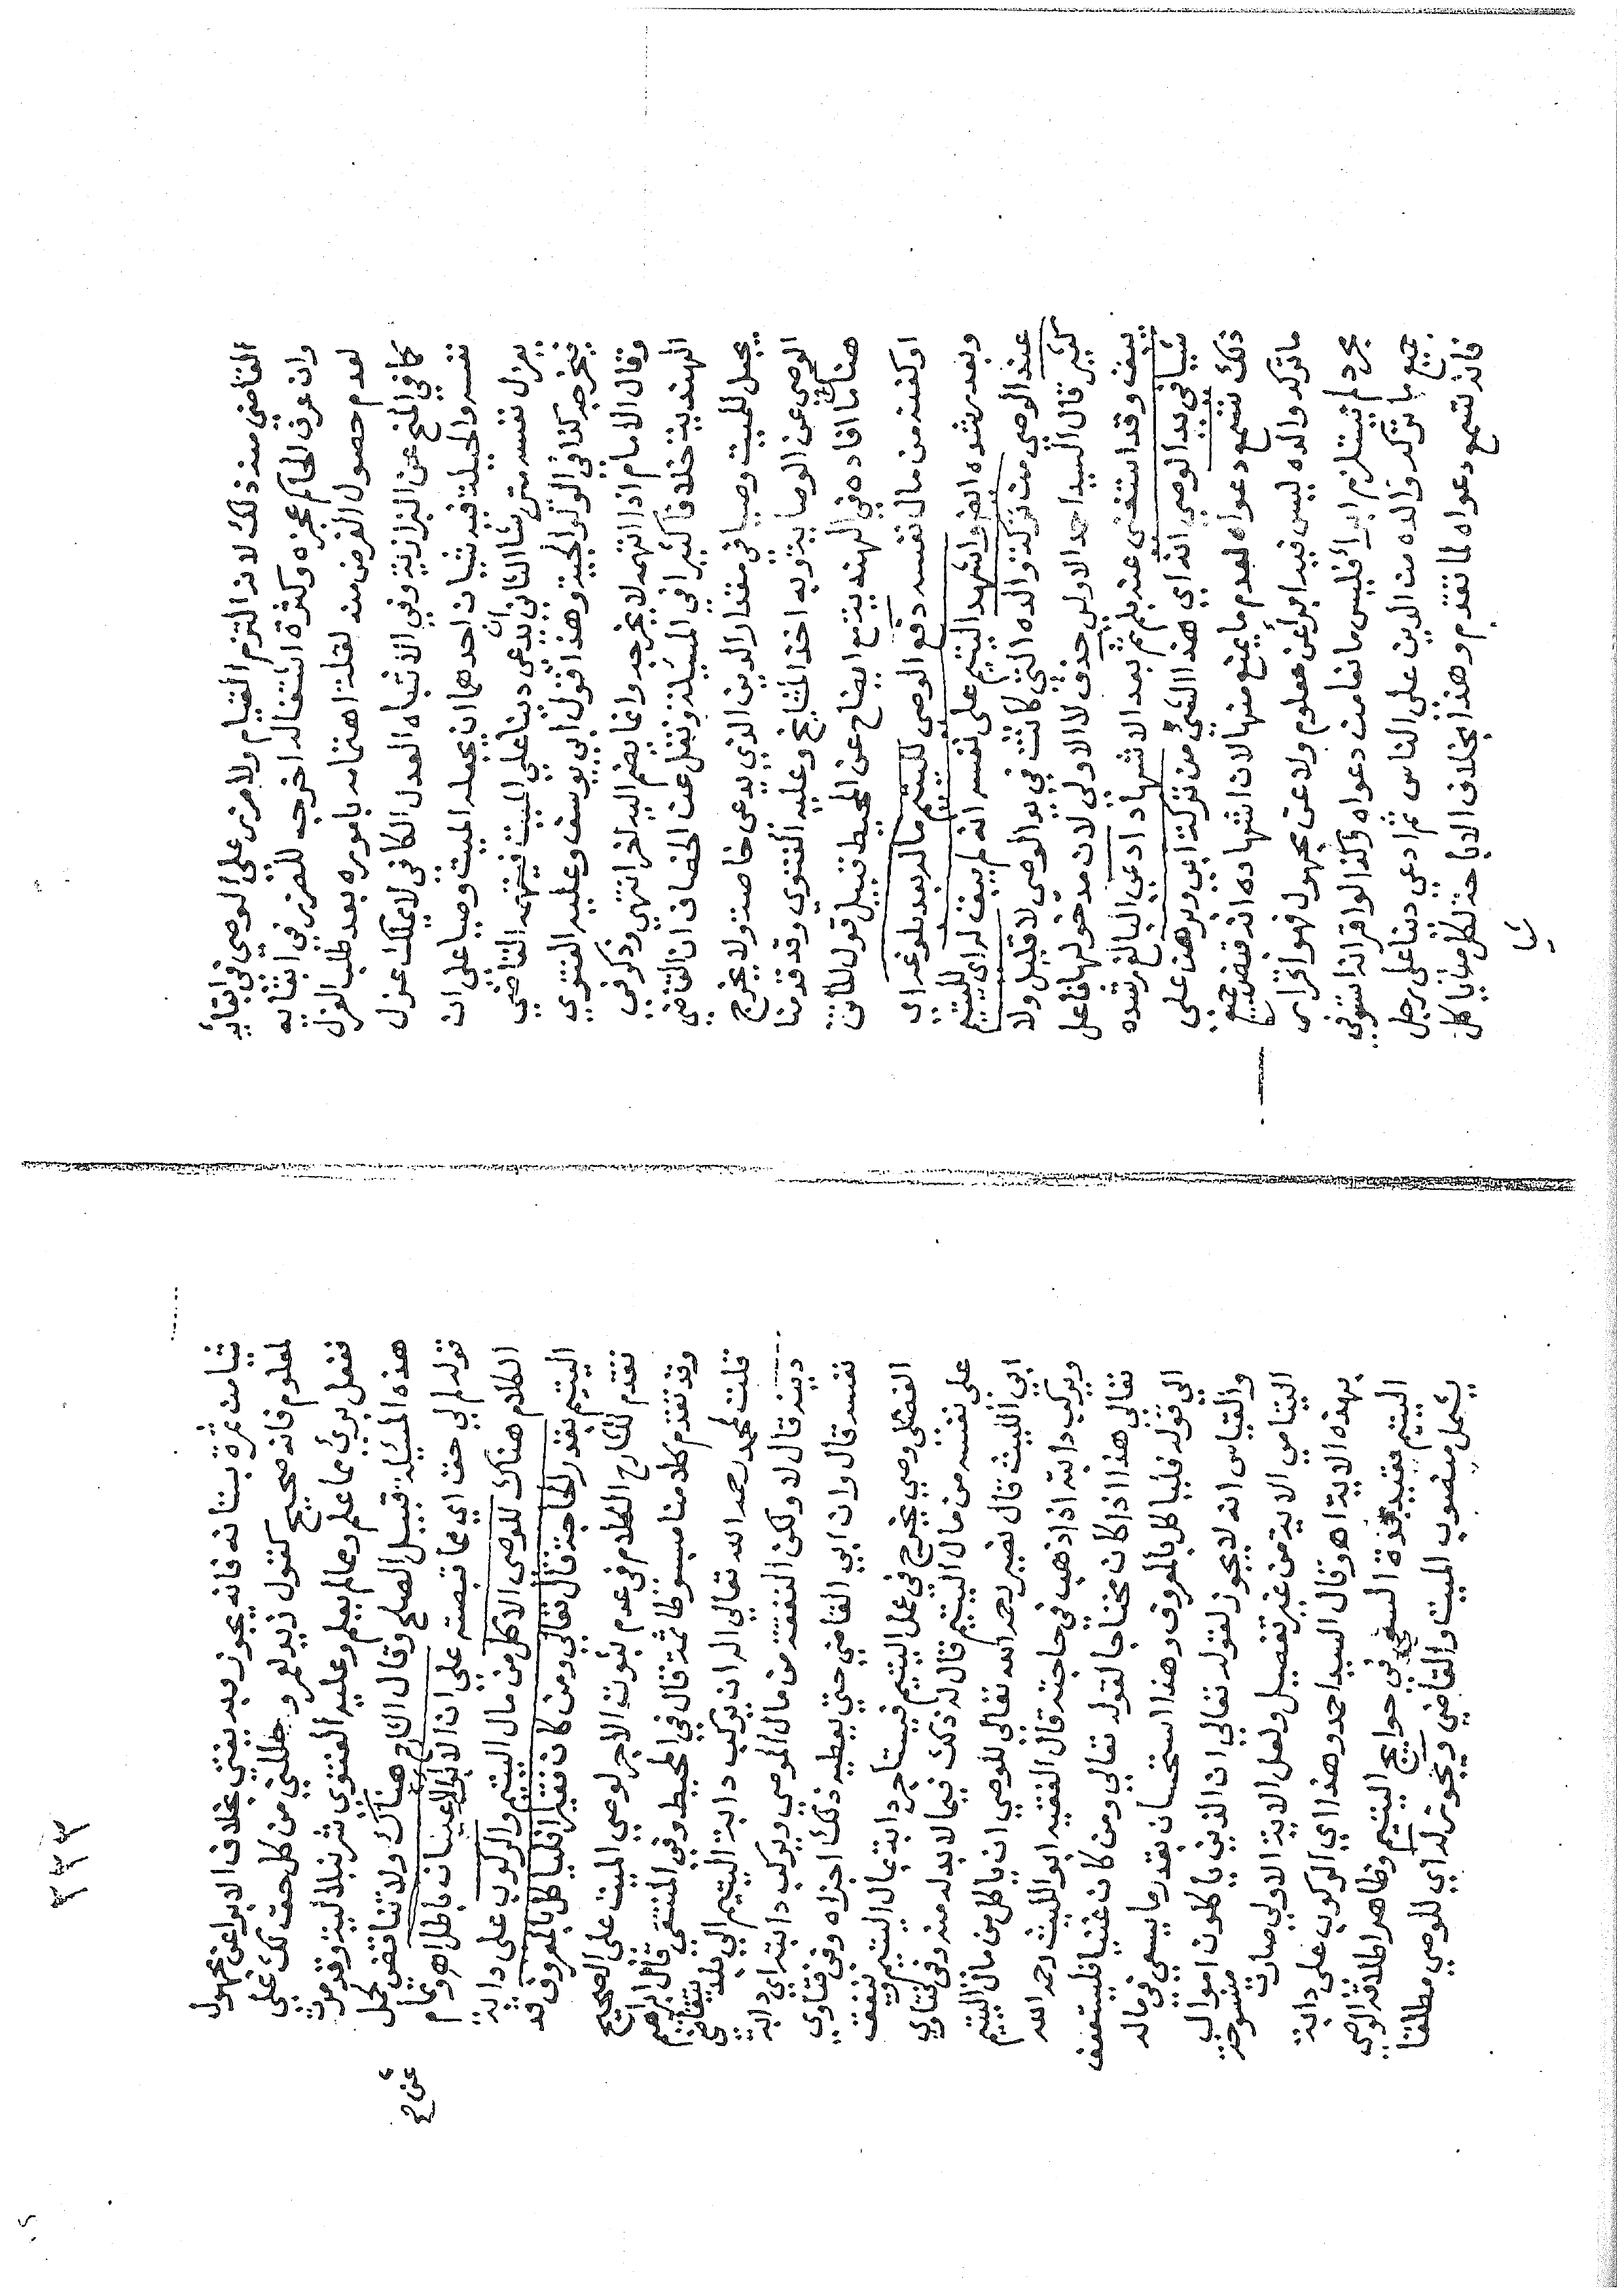 القاضي منه ذلك لانه التزم القيام ولا ضرر على الوصي في ابقائه
وان عرف الحاكم عجزه وكثرة اشتغاله اخرجه للضرر في ابقائه
لعدم حصول الغرض منه لقلة اهتمامه باموره بعد طلب العزل
كما في المنح عن البزازية وفي الاشباه العدل الكافي لا يملك عزل
نفسه والحيلة فيه شيئان احدهما ان يجعله الميت وصيا على ان
يعزل نفسه متى شاء الثاني ان يدعي دينا على الميت فيتهمه القاضي
فيخرجه كذا في الولوالجية وهذا قول ابي يوسف وعليه الفتوى
وقال الامام اذا اتهمه لا يخرجه وانما يضم اليه اخر انتهى وذكر في
الهندية خلافا كثيرا في المسئلة ونقل عن الخصاف ان القاضي
يجعل للميت وصيا في مقدار الدين الذي يدعي خاصة ولا يخرج
الوصي عن الوصاية وبه اخذ المشايخ وعليه الفتوى وقد قدمنا
هناك ما افاده في الهندية مع ايضاح عن المحيط قبيل قول الماتن
او كفنه من مال نفسه دفع الوصي لليتيم ماله بعد بلوغه اي
وبعد رشده الغز واشهد اليتيم على نفسه انه لم يبق له اي لليتيم
عند الوصي من تركة والده التي كانت في يد الوصي لا قليل ولا
كثير قال السيد احمد الاولى حذف لا الاولى لان مدخولها فاعل
يبق وقد استغنى عنه بلم ثم بعد الاشهاد ادعى البالغ رشده
شيئا في يد الوصي انه اي هذا الشيء من تركة ابي وبرهن على
ذلك تسمع دعواه لعدم ما يمنع منها لان اشهاده انه قبض جميع
ما تركه والده ليس فيه ابراء عن معلوم ولا عن مجهول فهو اقرار
مجرد لم يستلزم ابراء فليس مانعا من دعواه وكذا لو اقر انه استوفى
جميع ما تركه والده من الدين على الناس ثم ادعى دينا على رجل
فانه تسمع دعواه لما تقدم وهذا بخلاف الاباحة لكل من ياكل
شيا
٣٣٣
شيا من ثمرة بستانه فانه يجوز به يفتى بخلاف الابراء عن مجهول
لمعلوم فانه صحيح كقول زيد لعمرو حاللني من كل حق لك علي
ففعل برئ مما علم ومما لم يعلم وعليه الفتوى شرنبلالية وقد مرت
هذه المسئلة قبيل الصلح وقال الشارح هناك ولا تناقض لحمل
قوله لم يبق لي حق اي مما قبضته على ان الابراء عن الاعيان باطل اهـ وتمام
الكلام هناك للوصي الاكل من مال اليتيم والركوب على دابة
اليتيم بقدر الحاجة قال تعالى ومن كان فقيرا فلياكل بالمعروف قد
تقدم للشارح الكلام في عدم ثبوت الاجر لوصي الميت على الصحيح
وقد تقدم كلامنا مبسوطا ثمة قال في المحيط وفي المنتقى قال ابراهيم
قلت لمحمد رحمه الله تعالى اله ان يركب دابة اليتيم الى بلد يتقاضى
دينه قال لا ولكن النفقة من مال الموصي ويركب دابته اي دابة
نفسه قال وان ابى القاضي حتى يعطيه ذلك اجزاه وفي فتاوي
الفضلي وصي يخرج في عمل اليتيم فيستاجر دابة بمال اليتيم وينفق
على نفسه من مال اليتيم قال له ذلك فيما لا بد له منه وفي فتاوي
ابي الليث قال نصير رحمه الله تعالى للوصي ان ياكل من مال اليتيم
ويركب دابته اذا ذهب في حاجته قال الفقيه ابو الليث رحمه الله
تعالى هذا اذا كان محتاجا لقوله تعالى ومن كان غنيا فليستعفف
الى قوله فلياكل بالمعروف وهذا استحسان بقدر ما يسعى في ماله
والقياس انه لا يجوز لقوله تعالى ان الذين ياكلون اموال
اليتامى الاية من غير تفصيل ولعل الاية الاولى صارت منسوخة
بهذه الاية اهـ وقال السيد احمد وهذا اي الركوب على دابة
اليتيم تقييد بمدة السعي في حوايج اليتيم وظاهر اطلاقه الوصي
يشمل منصوب الميت والقاضي ويجوز له اي للوصي مطلقا